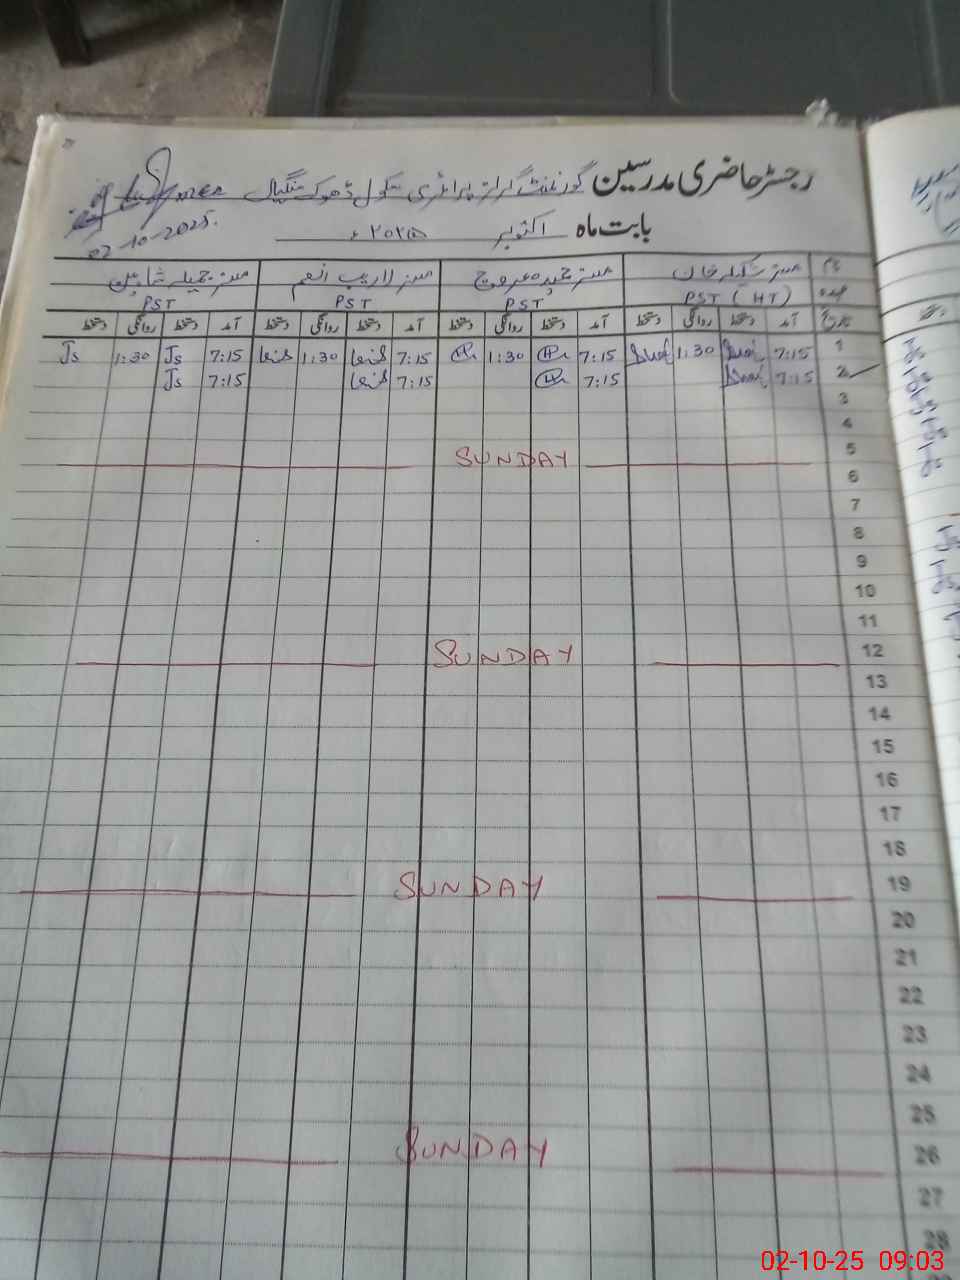 رجسٹر حاضری مدرسین گورنمنٹ گرلز پرائمری سکول ڈھوک منگیال
02-10-2025.
بابت ماہ اکتوبر ۲۰۲۵ء
نام مسز شکیلہ خان مسز حمیرہ عروج مسز لاریب انعم مسز جمیلہ شاہین
عہدہ PST (HT) PST PST PST
تاریخ آمد دستخط روانگی دستخط آمد دستخط روانگی دستخط آمد دستخط روانگی دستخط آمد دستخط روانگی دستخط
1 7:15 1:30 7:15 1:30 7:15 1:30 7:15 Js 1:30 Js
2 7:15 7:15 7:15 7:15 Js
3
4
5 SUNDAY
6
7
8
9
10
11
12 SUNDAY
13
14
15
16
17
18
19 SUNDAY
20
21
22
23
24
25
26 SUNDAY
27
28
02-10-25 09:03